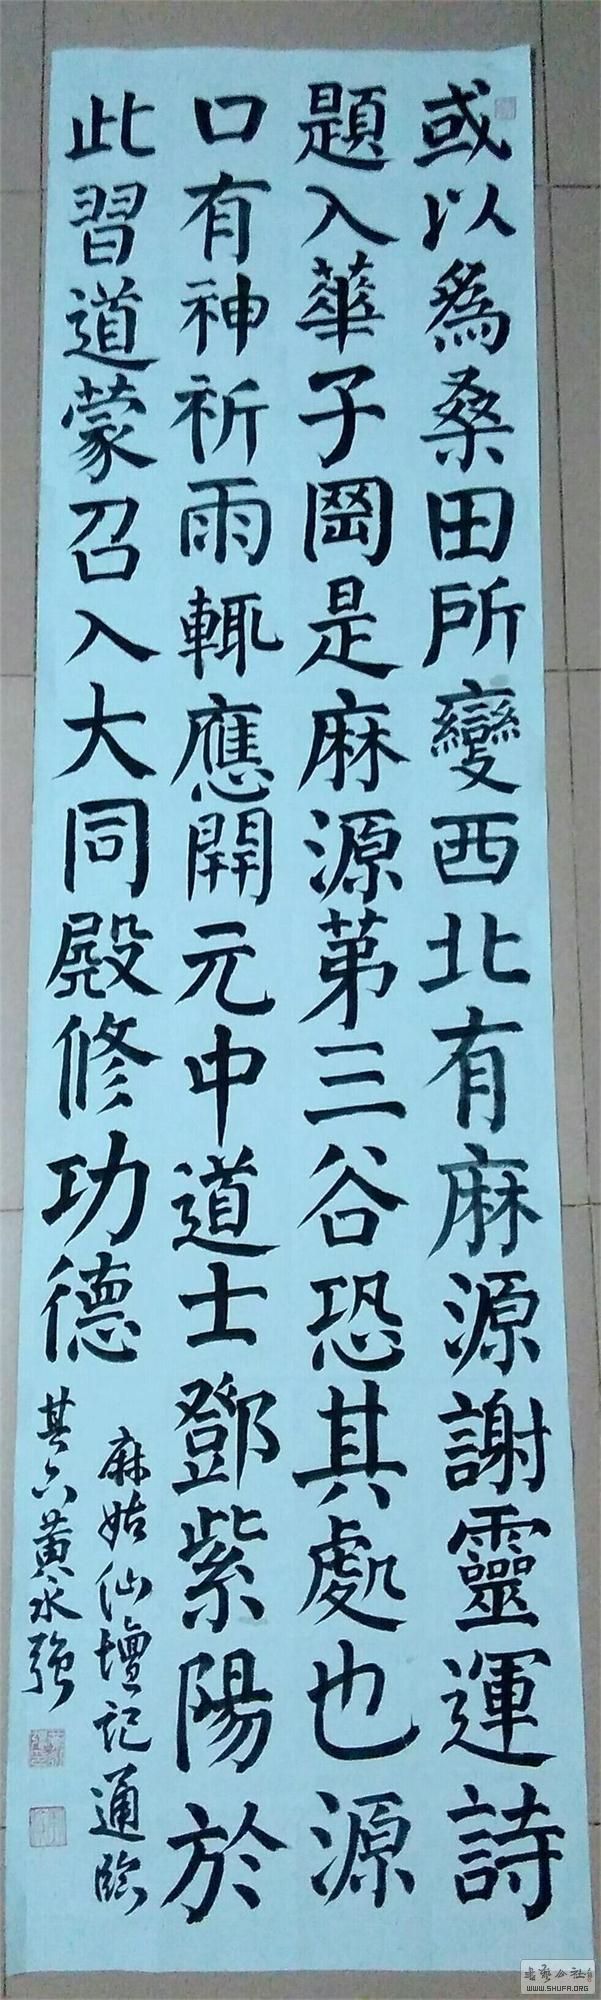 或以為桑田所變西北有麻源謝靈運詩
題入華子岡是麻源第三谷恐其處也源
口有神祈雨輒應開元中道士鄧紫陽於
此習道蒙召入大同殿修功德
麻姑仙壇記通臨
其六黃永強
书艺公社
WWW.SHUFA.ORG